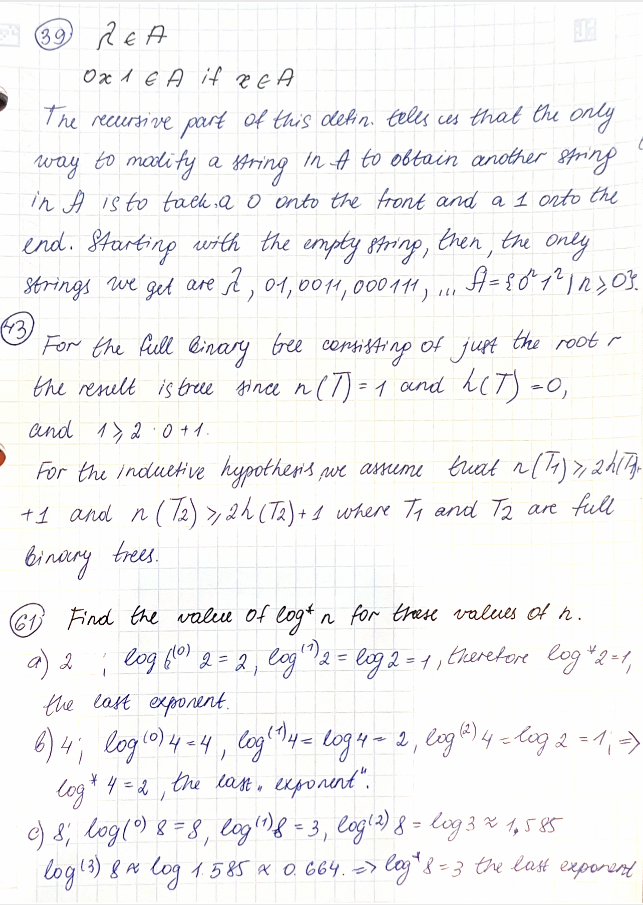 39 λ ∈ A
0x1 ∈ A if x ∈ A
The recursive part of this defin. tells us that the only
way to modify a string in A to obtain another string
in A is to tack a 0 onto the front and a 1 onto the
end. Starting with the empty string, then, the only
strings we get are λ, 01, 0011, 000111, ... A = {0ⁿ1ⁿ | n ≥ 0}.
43
For the full binary tree consisting of just the root r
the result is true since n(T) = 1 and h(T) = 0,
and 1 ≥ 2 · 0 + 1.
For the inductive hypothesis, we assume that n(T₁) ≥ 2h(T₁)
+1 and n(T₂) ≥ 2h(T₂) + 1 where T₁ and T₂ are full
binary trees.
61 Find the value of log* n for these values of n.
a) 2 ; log⁽⁰⁾ 2 = 2, log⁽¹⁾ 2 = log 2 = 1, therefore log* 2 = 1,
the last exponent.
b) 4; log⁽⁰⁾ 4 = 4, log⁽¹⁾ 4 = log 4 = 2, log⁽²⁾ 4 = log 2 = 1; ⇒
log* 4 = 2, the last „exponent".
c) 8; log⁽⁰⁾ 8 = 8, log⁽¹⁾ 8 = 3, log⁽²⁾ 8 = log 3 ≈ 1,585
log⁽³⁾ 8 ≈ log 1.585 ≈ 0.664. ⇒ log* 8 = 3 the last exponent